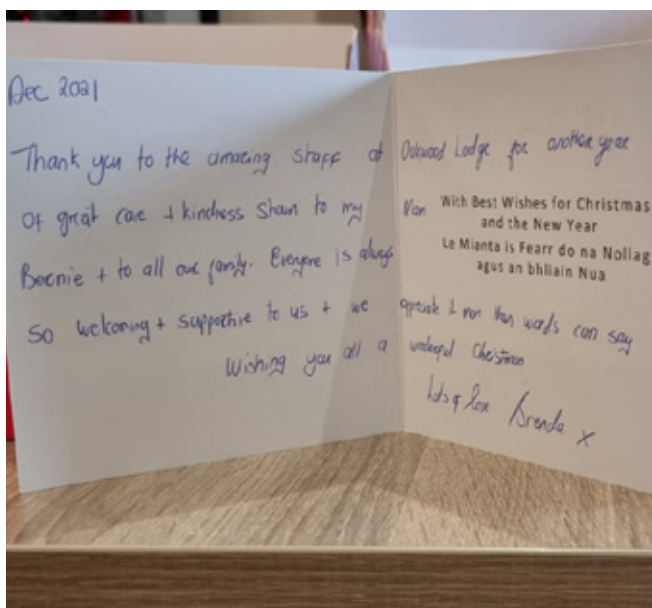 Dec 2021
Thank you to the amazing staff at Oakwood Lodge for another year
of great care + kindness shown to my Mam
Bernie + to all our family. Everyone is always
so welcoming + supportive to us + we appreciate it more than words can say
Wishing you all a wonderful Christmas
Lots of love Brenda x
With Best Wishes for Christmas
and the New Year
Le Mianta is Fearr do na Nollag
agus an bhliain Nua